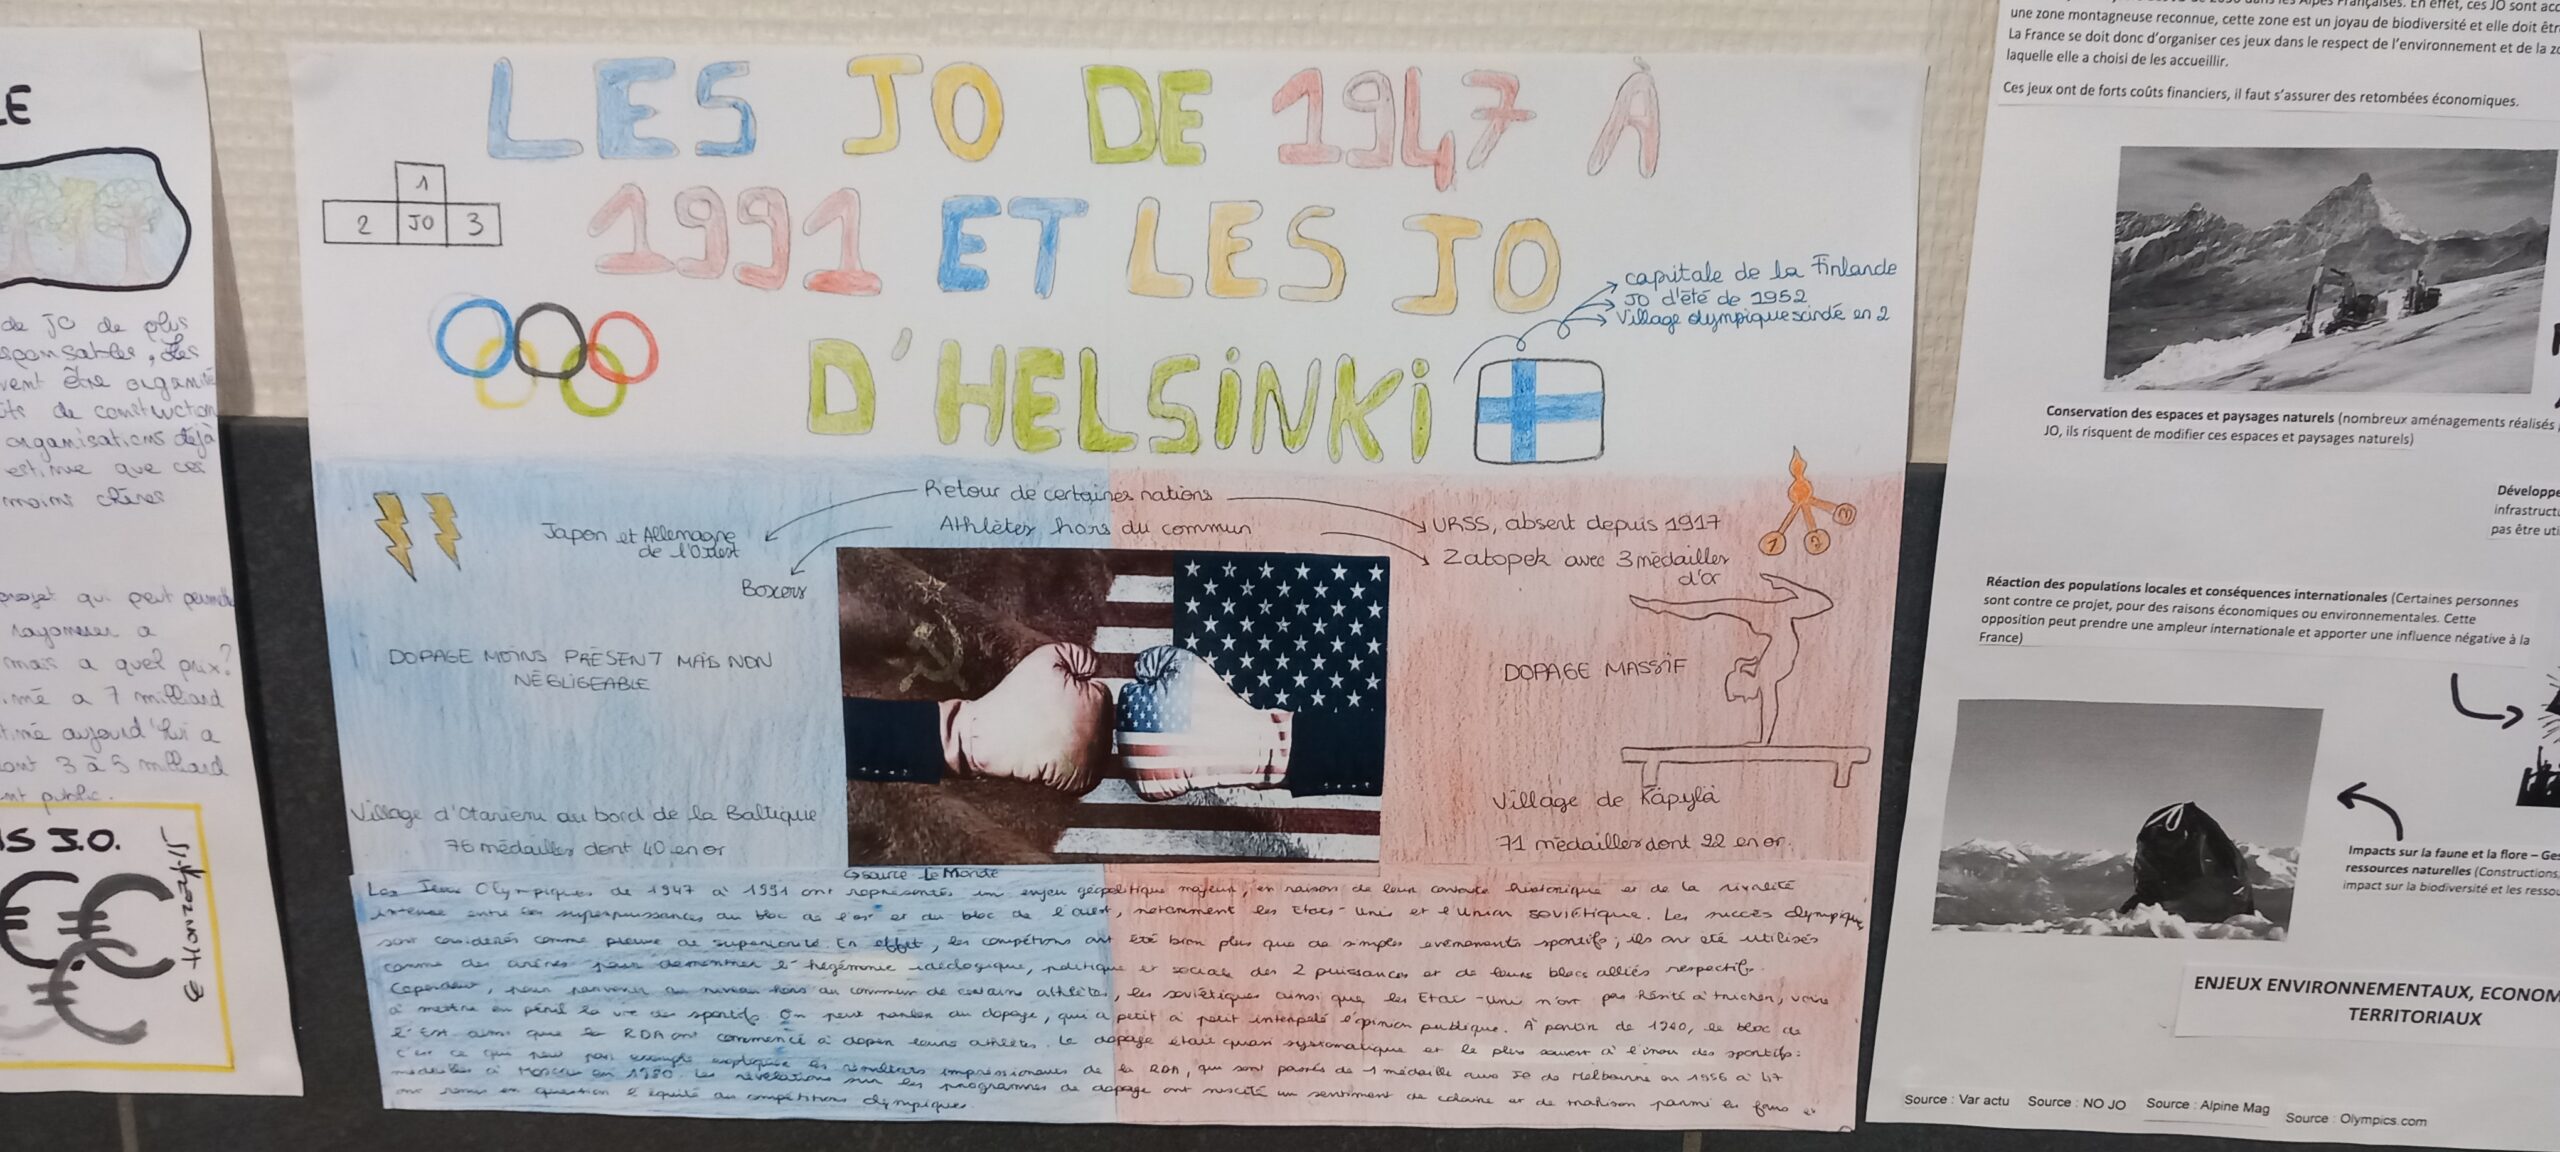 LE
de JO de plus
sponsables, des
vent être organisé
de construction
organisations déjà
estime que ces
moins chères
projet qui peut permett
rayonner a
mais a quel prix?
imé a 7 milliard
aujourd'hui a
ont 3 à 5 milliard
nt public.
S J.O.
LES JO DE 1947 À
1991 ET LES JO
D'HELSINKI
1
2 JO 3
capitale de la Finlande
JO d'été de 1952
Village olympique scindé en 2
Retour de certaines nations
Japon et Allemagne
de l'Ouest
URSS, absent depuis 1917
Athlètes hors du commun
Boxers
Zatopek avec 3 médailles
d'or
1 2 3
DOPAGE MOINS PRÉSENT MAIS NON
NÉGLIGEABLE
DOPAGE MASSIF
Village d'Otaniemi au bord de la Baltique
76 médailles dont 40 en or
Village de Käpylä
71 médailles dont 22 en or.
source Le Monde
Les Jeux Olympiques de 1947 à 1991 ont représentés un enjeu géopolitique majeur, en raison de leur contexte historique et de la rivalité
intense entre les superpuissances du bloc de l'est et du bloc de l'ouest, notamment les Etats-Unis et l'Union soviétique. Les succès olympique
sont considérés comme preuve de superiorité. En effet, les compétions ont été bien plus que de simples evénements sportifs; ils ont été utilisés
comme des arènes pour démontrer l'hégémonie idéologique, politique et sociale des 2 puissances et de leurs blocs alliés respectifs.
Cependant, pour parvenir au niveau hors du commun de certains athlètes, les soviétiques ainsi que les Etat-Uni n'ont pas hésité à tricher, voire
à mettre en péril la vie des sportifs. On peut parler du dopage, qui a petit à petit interpelé l'opinion publique. À partir de le bloc de
l'Est ainsi que la RDA ont commencé à doper leurs athlètes. Le dopage était quasi systématique et le plus souvent à l'insu des sportifs:
c'est ce qui peut par exemple expliquer les résultats impressionants de la RDA, qui sont passés de 1 médaille aux JO de Melbourne en 1956 à 47
médailles à Moscou en 1980. Les révélations sur les programmes de dopage ont suscité un sentiment de colère et de trahison parmi les fans et
ont remis en question l'équité des compétitions olympiques.
dans les Alpes Françaises. En effet, ces JO sont acc
une zone montagneuse reconnue, cette zone est un joyau de biodiversité et elle doit êtr
La France se doit donc d'organiser ces jeux dans le respect de l'environnement et de la zo
laquelle elle a choisi de les accueillir.
Ces jeux ont de forts coûts financiers, il faut s'assurer des retombées économiques.
Conservation des espaces et paysages naturels (nombreux aménagements réalisés
JO, ils risquent de modifier ces espaces et paysages naturels)
Développe
infrastructu
pas être uti
Réaction des populations locales et conséquences internationales (Certaines personnes
sont contre ce projet, pour des raisons économiques ou environnementales. Cette
opposition peut prendre une ampleur internationale et apporter une influence négative à la
France)
Impacts sur la faune et la flore – Ges
ressources naturelles (Constructions,
impact sur la biodiversité et les ressou
ENJEUX ENVIRONNEMENTAUX, ECONOM
TERRITORIAUX
Source : Var actu Source : NO JO Source : Alpine Mag Source : Olympics.com